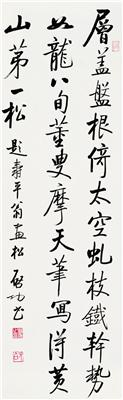 層盖盤根倚太空虬枝鐵幹勢
如龍八旬董叟摩天筆寫得黄
山苐一松 題壽平翁畫松 啟功